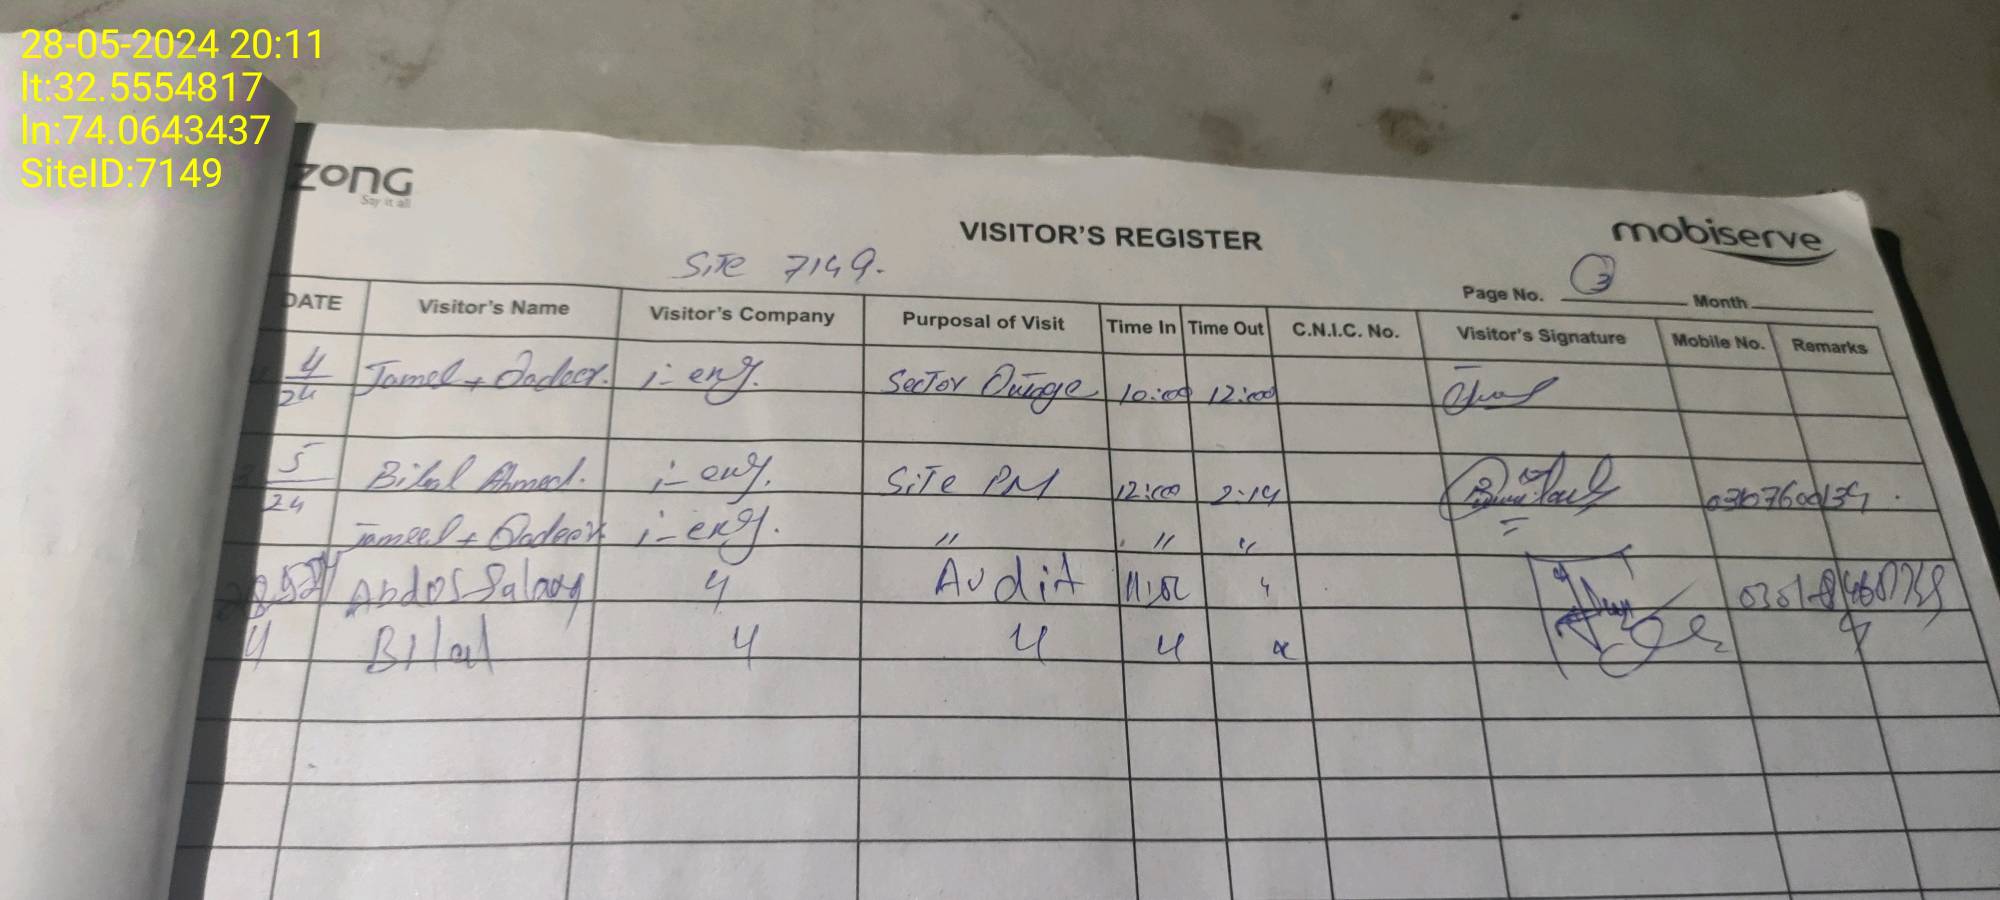 28-05-2024 20:11
lt:32.5554817
ln:74.0643437
SiteID:7149
zong
Say it all
mobiserve
VISITOR'S REGISTER
Site 7149.
Page No. 3 Month
DATE Visitor's Name Visitor's Company Purposal of Visit Time In Time Out C.N.I.C. No. Visitor's Signature Mobile No. Remarks
4/24 Jamel + Qadeer. i-eng. Sector Outage 10:00 12:00
5/24 Bilal Ahmed. i-eng. Site PM 12:00 2:14
Jameel + Qadeer i-eng. " " "
Audit
Bilal